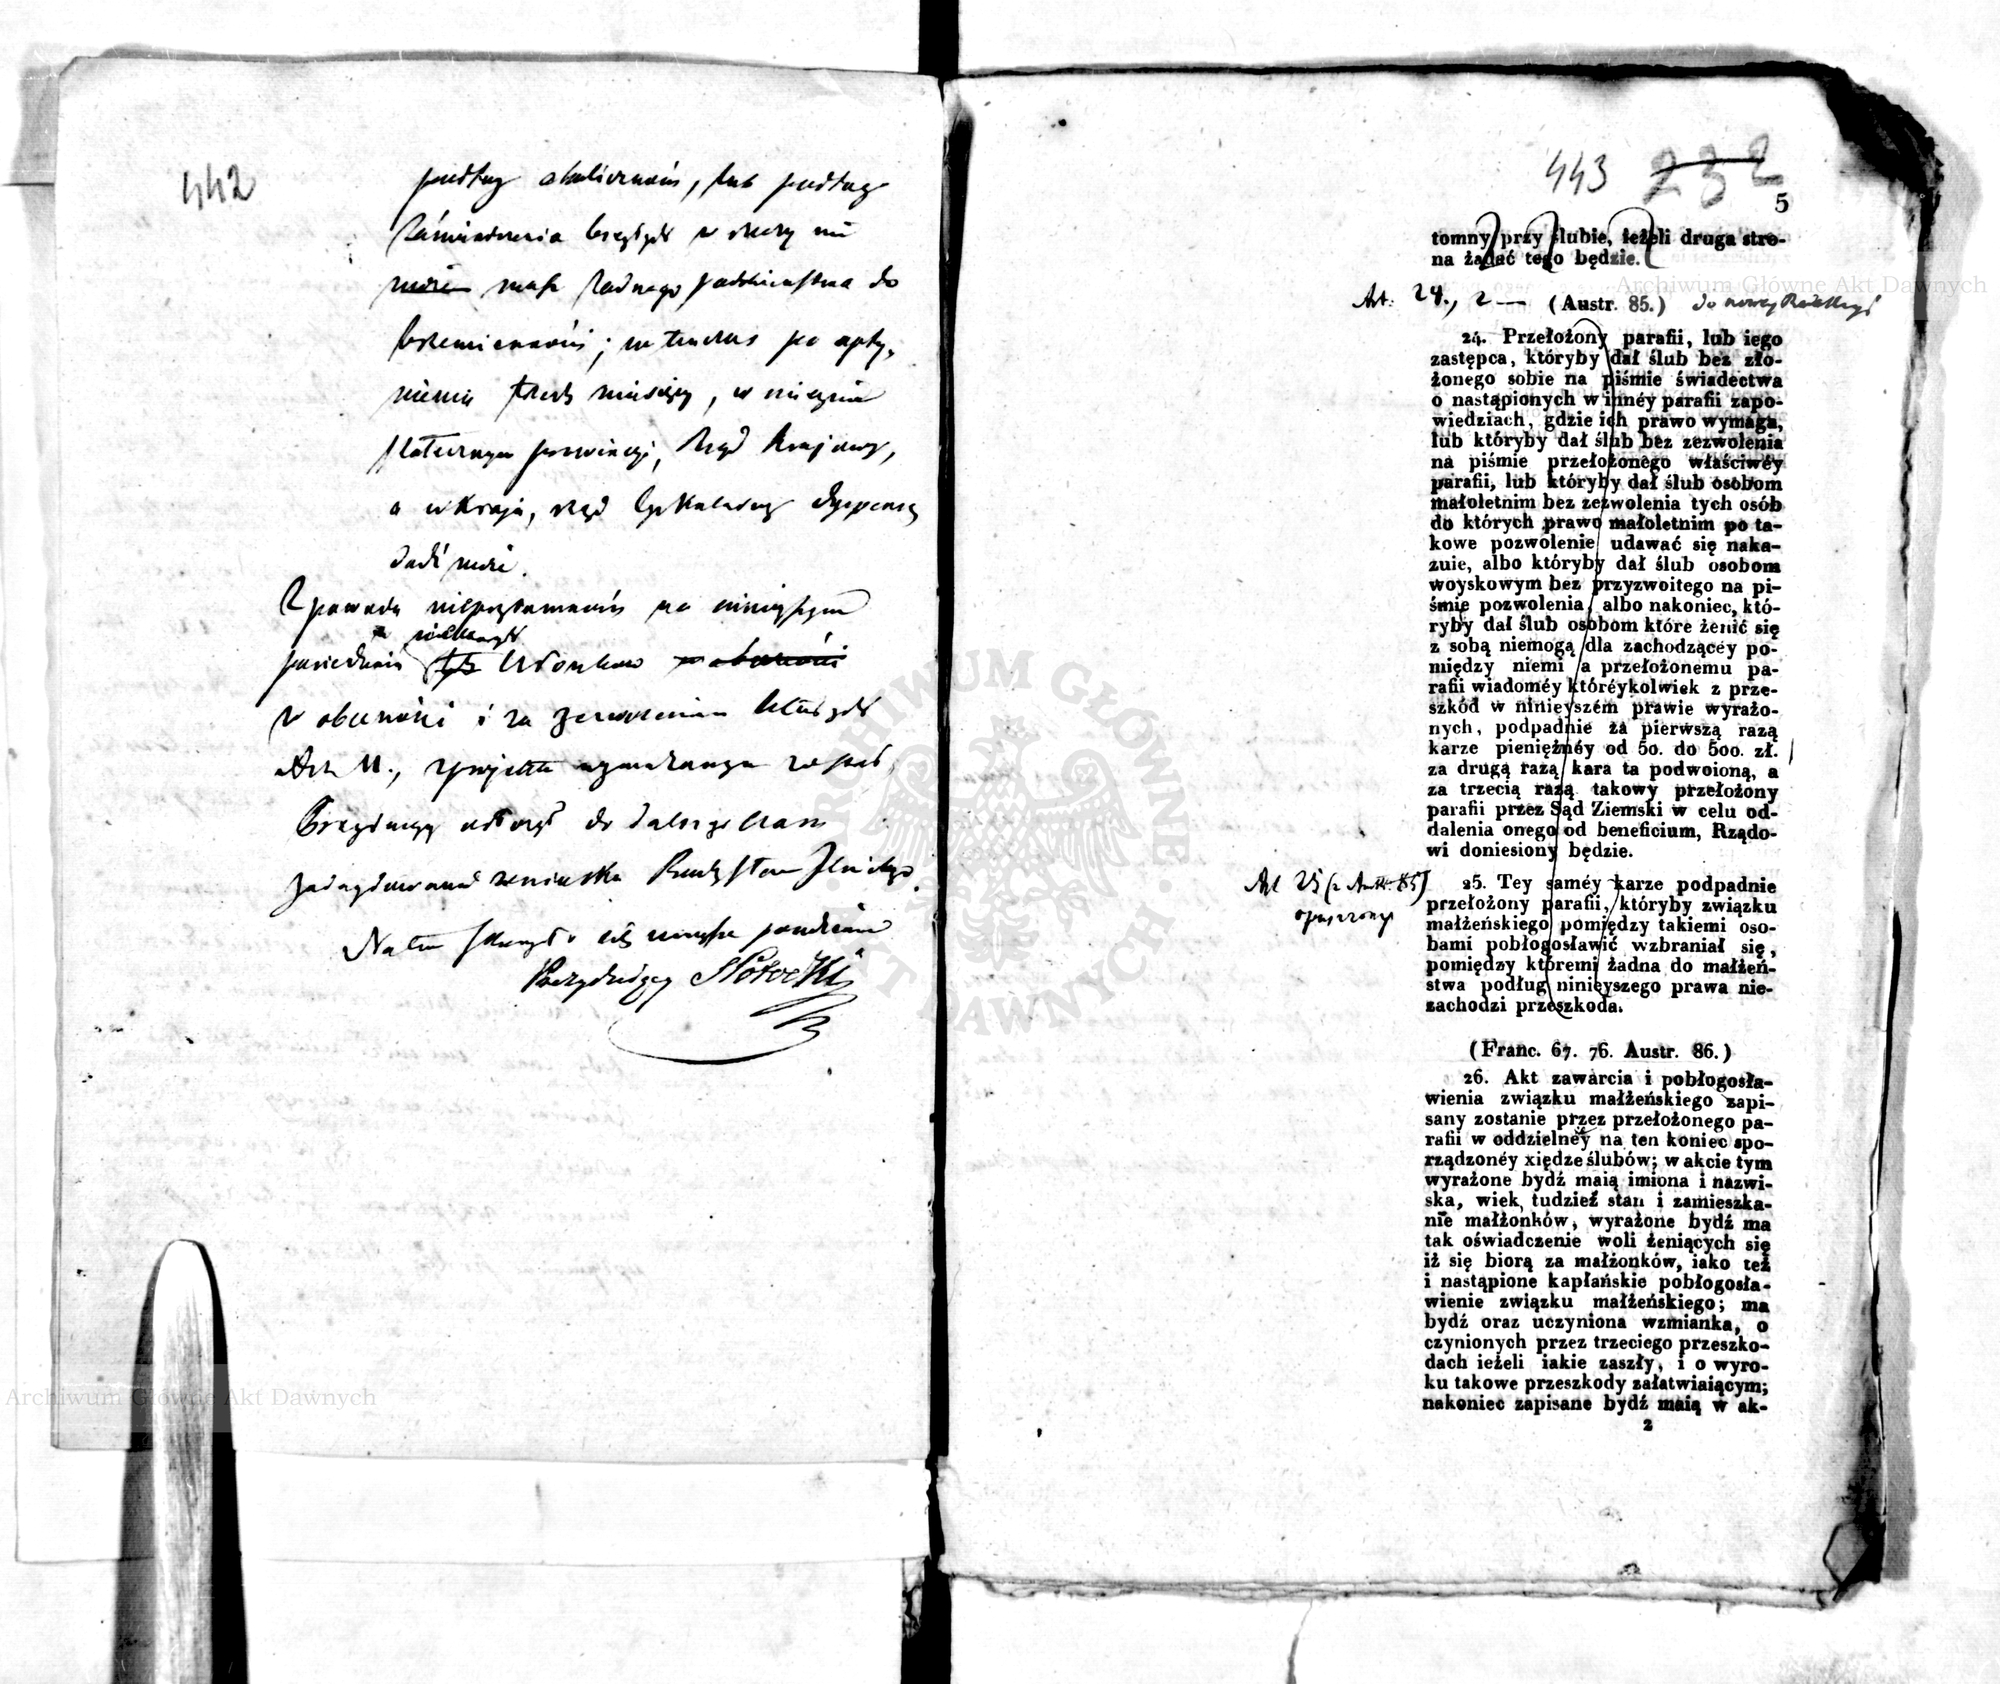 442
podług okoliczności, lub podług
Zaświadczenia biegłych w rzeczy nie
może masz żadnego podobieństwa do
brzemienności; wówczas po upły-
nieniu trzech miesięcy, w mieyscu
stołecznym prowincyi, Rząd Krajowy,
a w Kraju, rząd Cyrkularny dyspensę
dadź może.
Z powodu nieprzytomności na ninieyszym
posiedzeniu niektórych Członków w obecności
w obecności i za zezwoleniem których
Art 11., projektu
Prezyduiący do dalszego
Na tém skończyło się posiedzenie
Prezyduiący
443 232
5
tomny przy ślubie, ieżeli druga stro-
na żądać tego będzie.
Art: 24., 2 — (Austr. 85.) do nowey Redakcyi
24. Przełożony parafii, lub iego
zastępca, któryby dał ślub bez zło-
żonego sobie na piśmie świadectwa
o nastąpionych w innéy parafii zapo-
wiedziach, gdzie ich prawo wymaga,
lub któryby dał ślub bez zezwolenia
na piśmie przełożonego właściwéy
parafii, lub któryby dał ślub osobom
małoletnim bez zezwolenia tych osób
do których prawo małoletnim po ta-
kowe pozwolenie udawać się naka-
zuie, albo któryby dał ślub osobom
woyskowym bez przyzwoitego na pi-
śmie pozwolenia, albo nakoniec, któ-
ryby dał ślub osobom które żenić się
z sobą niemogą dla zachodzącéy po-
między niemi a przełożonemu pa-
rafii wiadoméy któréykolwiek z prze-
szkód w ninieyszém prawie wyrażo-
nych, podpadnie za pierwszą razą
karze pieniężnéy od 50. do 500. zł.
za drugą razą kara ta podwoioną, a
za trzecią razą takowy przełożony
parafii przez Sąd Ziemski w celu od-
dalenia onego od beneficium, Rządo-
wi doniesiony będzie.
Art 25 (z Austr. 85)
opuszczony
25. Tey saméy karze podpadnie
przełożony parafii, któryby związku
małżeńskiego pomiędzy takiemi oso-
bami pobłogosławić wzbraniał się,
pomiędzy któremi żadna do małżeń-
stwa podług ninieyszego prawa nie-
zachodzi przeszkoda.
(Franc. 67. 76. Austr. 86.)
26. Akt zawarcia i pobłogosła-
wienia związku małżeńskiego zapi-
sany zostanie przez przełożonego pa-
rafii w oddzielnéy na ten koniec spo-
rządzonéy xiędze ślubów; w akcie tym
wyrażone bydź maią imiona i nazwi-
ska, wiek, tudzież stan i zamieszka-
nie małżonków, wyrażone bydź ma
tak oświadczenie woli żeniących się
iż się biorą za małżonków, iako też
i nastąpione kapłańskie pobłogosła-
wienie związku małżeńskiego; ma
bydź oraz uczyniona wzmianka, o
czynionych przez trzeciego przeszko-
dach ieżeli iakie zaszły, i o wyro-
ku takowe przeszkody załatwiaiącym;
nakoniec zapisane bydź maią w ak-
2
Archiwum Główne Akt Dawnych
Archiwum Główne Akt Dawnych
ARCHIWUM GŁÓWNE AKT DAWNYCH